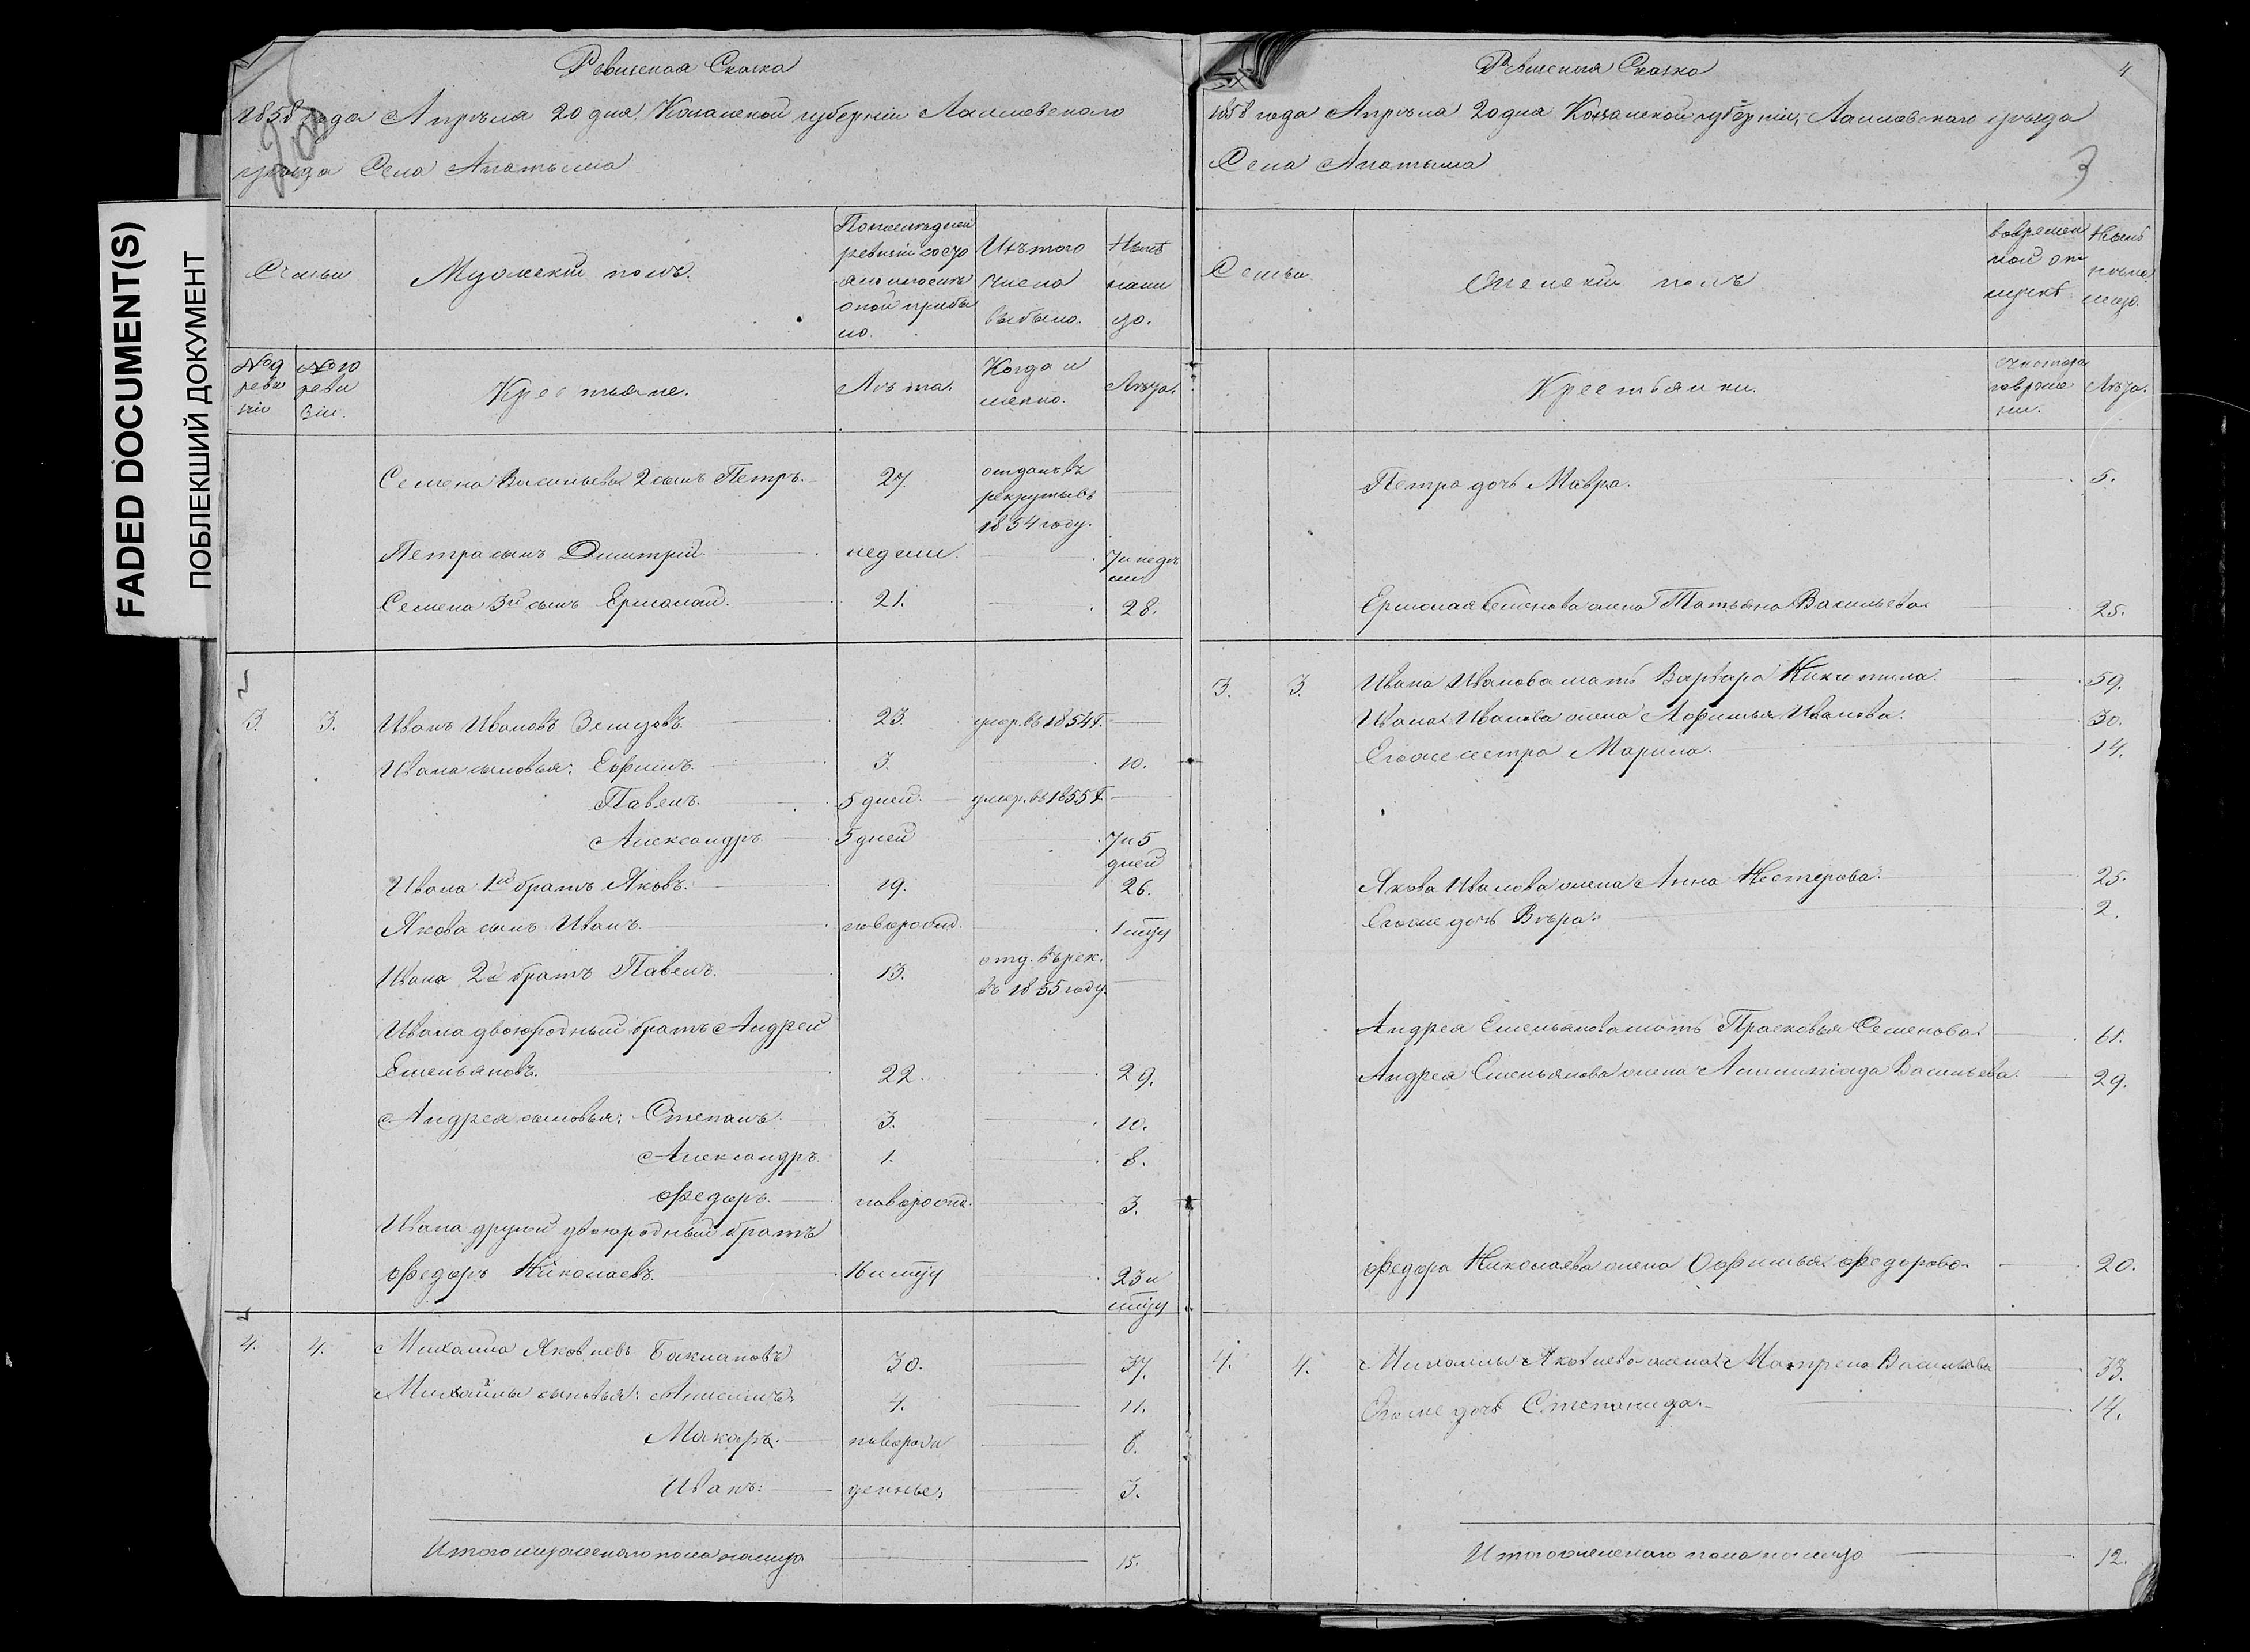 FADED DOCUMENT(S)
ПОБЛЕКШИЙ ДОКУМЕНТ
Ревизская Сказка
1858 года Апрѣля 20 дня, Казанской губерніи Лаишевскаго
уѣзда Села Анатыша
Семьи
Мужескій полъ.
По последней
ревизіи состо
яло и после
оной прибы
ло.
Изъ того
числа
выбыло.
Нынѣ
нали
цо.
№ 9
реви
зіи
№ 10
реви
зіи.
Крестьяне.
Лѣта.
Когда и
менно.
Лѣта.
Семена Васильева 2 сынъ Петръ. 27 отданъ въ
рекруты въ
1854 году.
Петра сынъ Дмитрій недели 7 и недѣ
ли
Семена 3й сынъ Ермолай. 21. 28.
3. 3. Иванъ Ивановъ 23 умер. въ 1854 г.
Ивана сыновья: Ефимъ. 3. 10.
Павелъ. 5 дней. умер. въ 1855 г.
Александръ 5 дней 7 и 5
дней
Ивана 1й братъ Яковъ. 19. 26.
Якова сынъ Иванъ новорожд.
Ивана 2й братъ Павелъ. 13. отд. въ рек.
въ 1855 году.
Ивана двоюродный братъ Андрей
Емельяновъ. 22. 29.
Андрея сыновья: Степанъ. 3. 10.
Александръ. 1. 8.
Федоръ. новорожд. 3.
Ивана другой двоюродный братъ
Федоръ Николаевъ. 16 и 23 и
4. 4. Михайла Яковлевъ Баклановъ 30. 37.
Михайлы сыновья: Анисимъ. 4. 11.
Макаръ. новорож 6.
Иванъ: денные. 3.
Итого мужескаго пола налицо 15.
Ревизская Сказка
4
1858 года Апрѣля 20 дня Казанской губерніи, Лаишевскаго уѣзда
Села Анатыша
3
Семьи.
Женскій полъ
во времен
ной от
лучкѣ
Нынѣ
на
лицо.
Крестьянки.
съ котораго
време
ни.
Лѣта.
Петра дочь Мавра. 5.
Ермолая Семенова жена Татьяна Васильева 25.
3. 3. Ивана Иванова мать Варвара Никитина. 59.
Ивана Иванова жена Афимья Иванова. 30.
Его же сестра Марина. 14.
Якова Иванова жена Анна Нестерова. 25.
Его же дочь Вѣра. 2.
Андрея Емельянова мать Прасковья Семенова 61.
Андрея Емельянова жена Васильева 29.
Федора Николаева жена Офимья Федорова. 20.
4. 4. Михайлы Яковлева жена Матрена Васильева 33.
Его же дочь Степанида. 14.
Итого женскаго пола налицо 12.